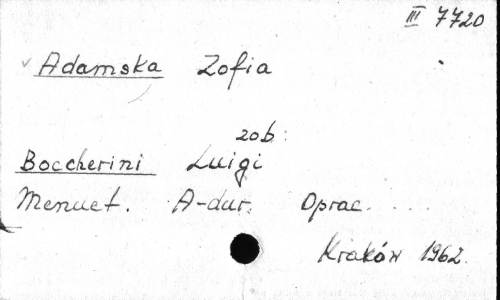 III 7720
Adamska Zofia
zob:
Boccherini Luigi
Menuet. A-dur. Oprac. . . . .
Kraków 1962.